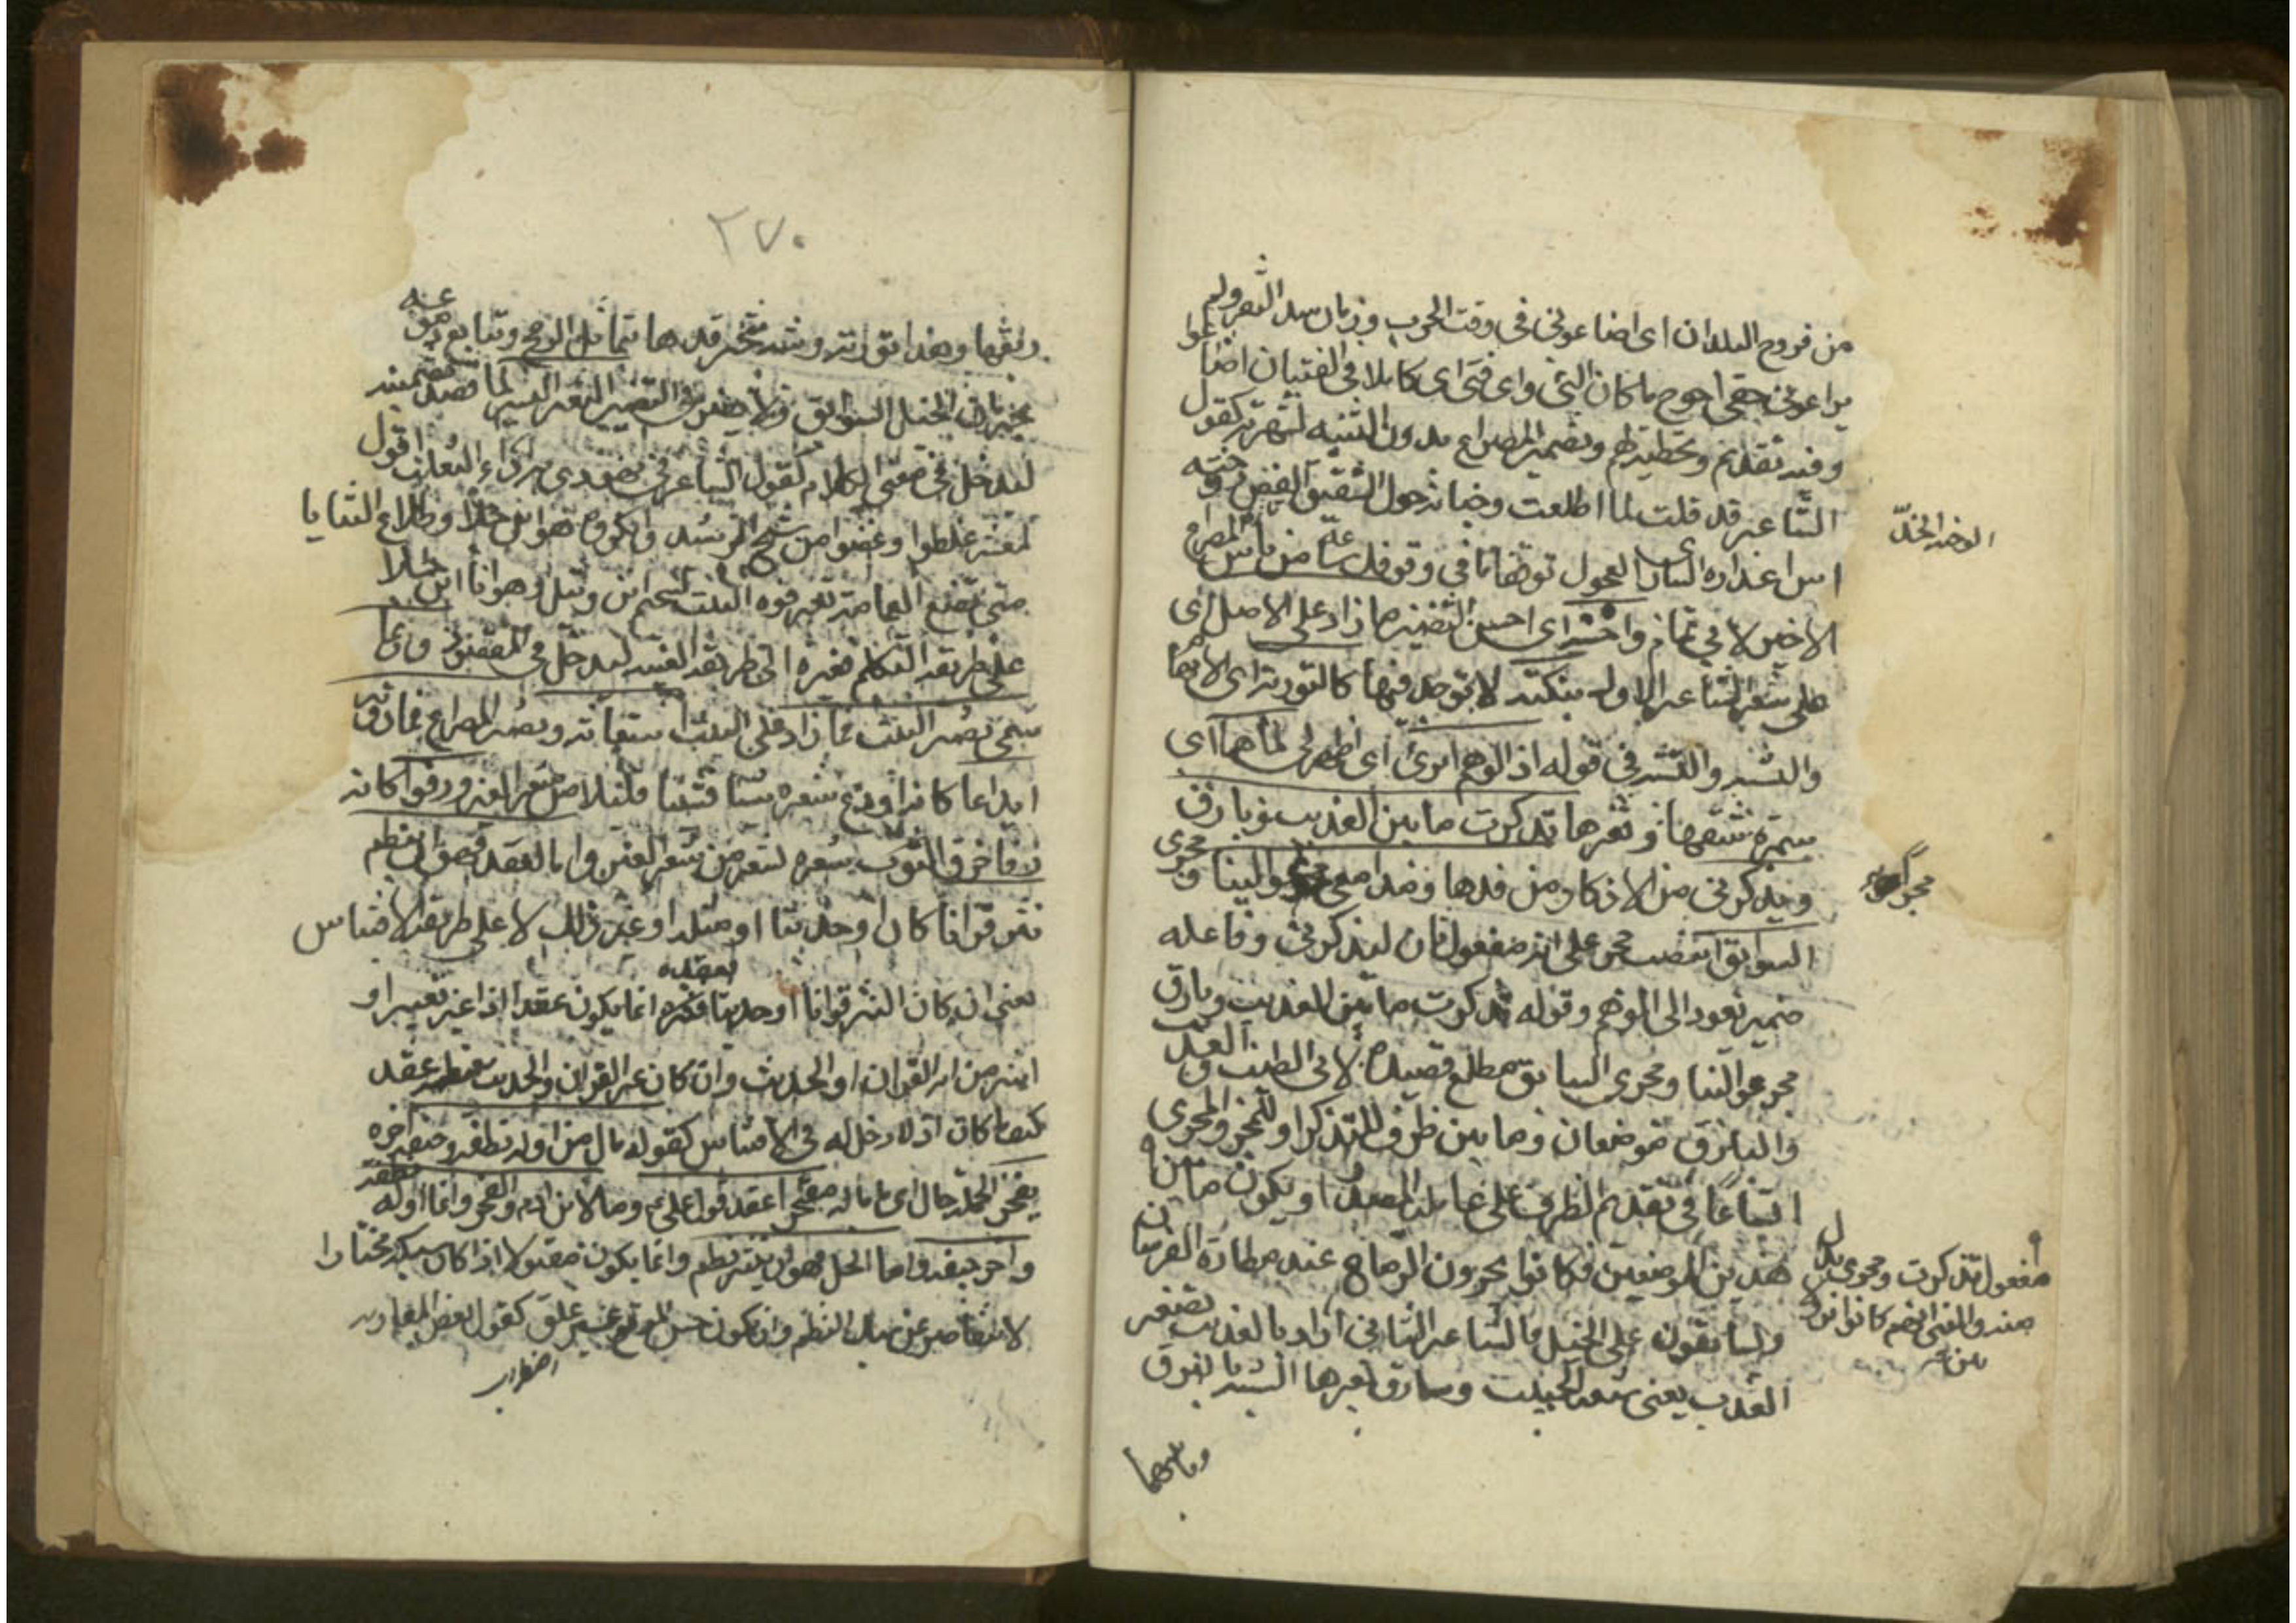 من فروج البلدان اى اضاعونى فى وقت الحرب وزمان سد الثغر ولم
يراعوا حقى احوج ما كان الىّ واى فتى اى كاملا فى الفتيان اضاعوا
وفيه تقديم وتخطيئهم وتضمين المصراع بدون التنبيه لشهرته كقول
الشاعر قد قلت لما اطلعت وجناته حول الشقيق الغض روضة آس
اعذاره السارى العجول توقفا ما فى وقوفك ساعة من باس المصراع
الاخير لابى تمام واحسنه اى احسن التضمين ما زاد على الاصل اى
على شعر الشاعر الاول بنكتة لا توجد فيها كالتورية اى الايهام
والتشبيه فى قوله اذا الوهم ابدى اى اظهر لى لماها اى
سمرة شفتيها وثغرها تذكرت ما بين العذيب وبارق
ويذكرنى من الاذكار من قدها ومدامعى مجر عوالينا ومجرى
السوابق انتصب مجر على انه مفعول ثان ليذكرنى وفاعله
ضمير يعود الى الوهم وقوله تذكرت ما بين العذيب وبارق
مجر عوالينا ومجرى السوابق مطلع قصيدة لابى الطيب والعذيب
والبارق موضعان وما بين ظرف للتذكر او للمجر والمجرى
اتساعا فى تقديم الظرف على عامله المصدر او يكون ما بين
هذين الموضعين فكانوا يجرون الرماح عند مطاردة الفرسان
ويسابقون على الخيل فالشاعر الثانى اراد بالعذيب تصغير
العذب يعنى شفة الحبيبة وببارق ثغرها الشبيه بالبرق
وبما بينهما
مفعول تذكرت ومجرى بدل
منه والمعنى انهم كانوا نزولا
بين
٢٧٠
ريقها وهذا تورية وشبه تبختر قدها بتمايل الرمح وتتابع دموعه
بجريان الخيل السوابق ولا يضر فى التضمين التغيير اليسير لما قصد تضمينه
ليدخل فى معنى الكلام كقول الشاعر فى يهودى به داء الثعلب اقول
لمعشر غلطوا وغضوا من الشيخ الرشيد وانكروه هو ابن جلا وطلاع الثنايا
متى يضع العمامة تعرفوه البيت لسحيم ابن وثيل وهو انا ابن جلا
على طريقة التكلم فغيره الى طريقة الغيبة ليدخل فى المقصود وربما
سمى تضمين البيت فما زاد على البيت استعانة وتضمين المصراع فما دونه
ايداعا كانه اودع شعره شيئا قليلا من شعر الغير ورفوا كانه
رفا خرق الثوب شعره بشئ من شعر الغير واما العقد فهو ان ينظم
نثر قرانا كان او حديثا او مثلا او غير ذلك لا على طريق الاقتباس
يعنى ان كان النثر قرانا او حديثا فنظمه انما يكون عقدا اذا غير تغييرا
او اشير الى انه من القران او الحديث وان كان غير القران والحديث فنظمه عقد
كيفما كان اذ لا دخل له فى الاقتباس كقوله ما بال من اوله نطفة وجيفة اخره
يفخر الجملة حال اى ما باله مفتخرا عقد قول على وما لابن ادم والفخر وانما اوله نطفة
واخره جيفة واما الحل فهو ان ينثر نظم وانما يكون مقبولا اذا كان سبكه مختارا
لا يتقاصر عن سبك النظم وان يكون حسن الموقع غير قلق كقول بعض المغاربة